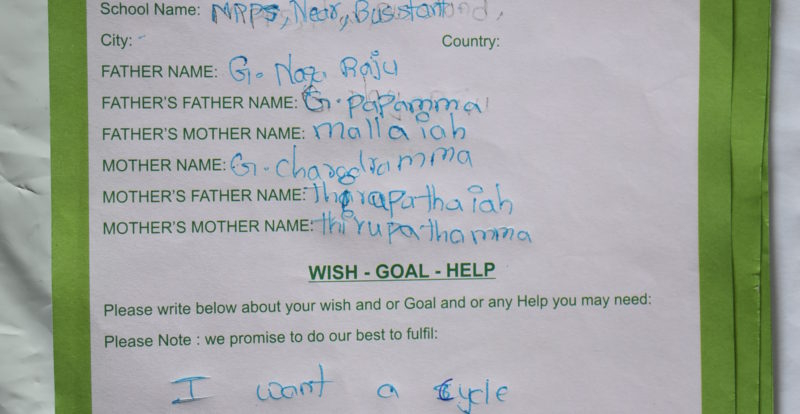 School Name: MRPS, Near, Busstand,
City: - Country:
FATHER NAME: G. Naga Raju
FATHER'S FATHER NAME: G. papamma
FATHER'S MOTHER NAME: mallaiah
MOTHER NAME: G. chandramma
MOTHER'S FATHER NAME: thirupathaiah
MOTHER'S MOTHER NAME: thirupathamma
WISH - GOAL - HELP
Please write below about your wish and or Goal and or any Help you may need:
Please Note : we promise to do our best to fulfil:
I want a cycle